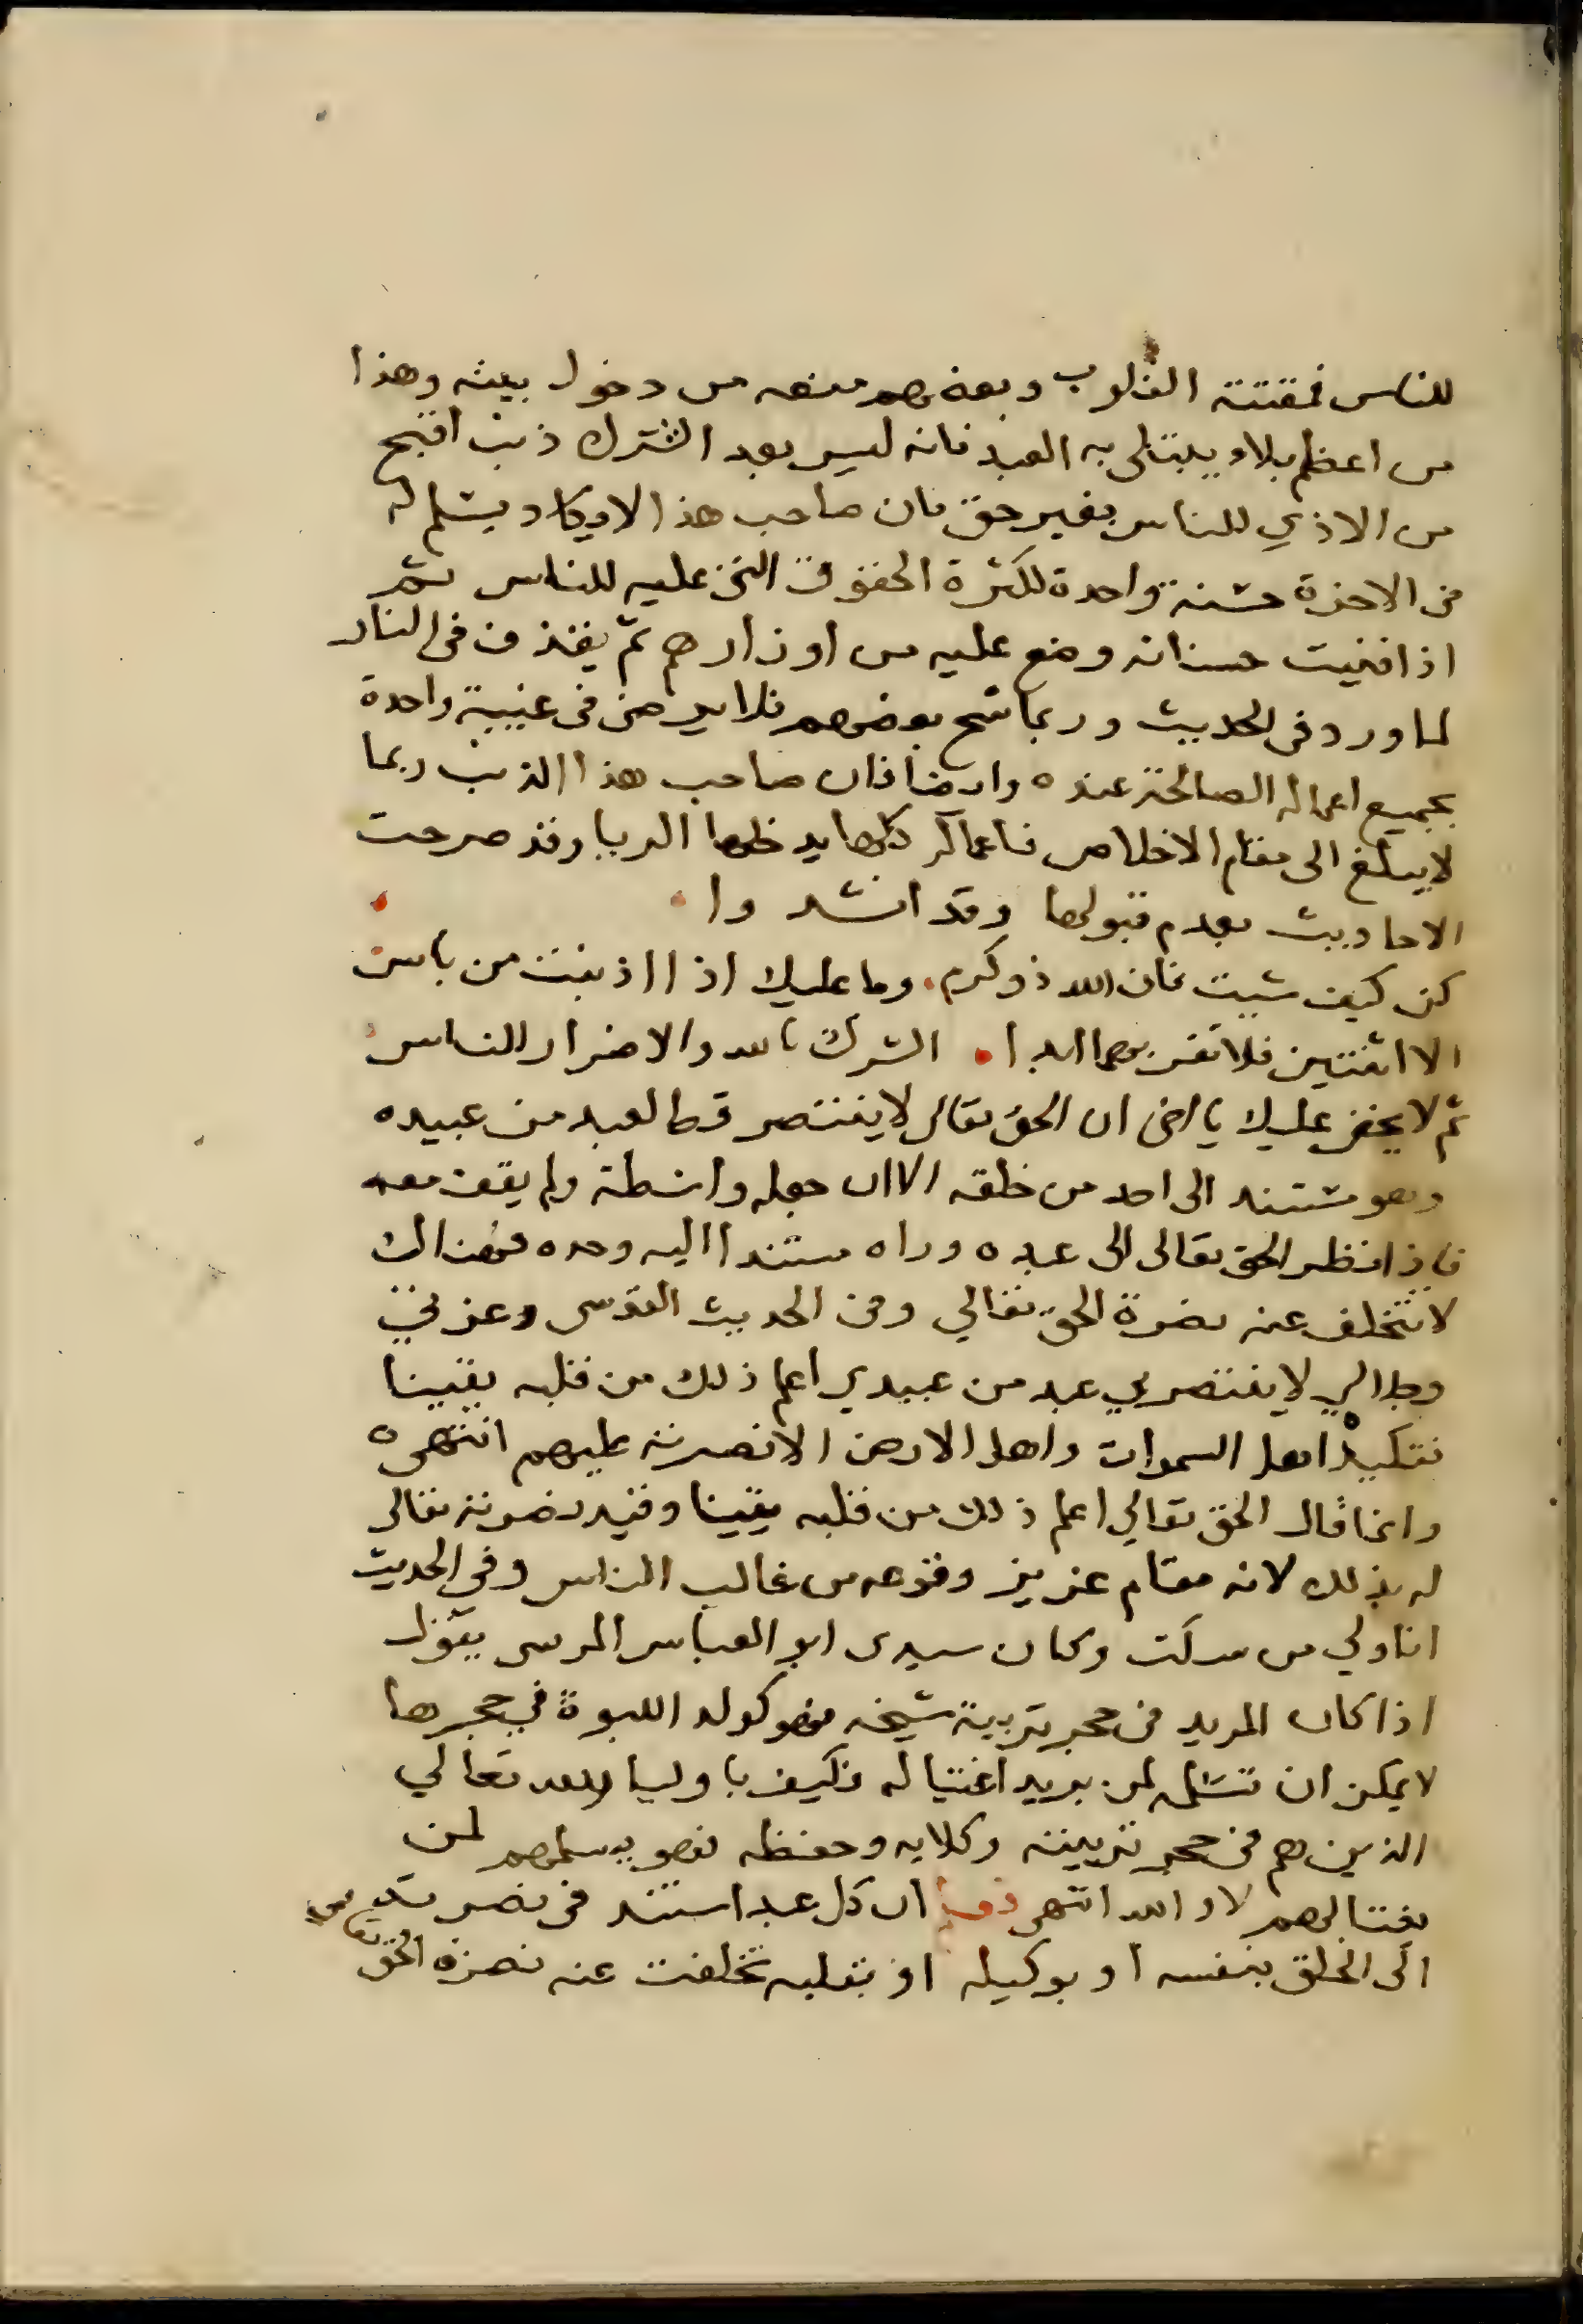 للناس فمقتته القلوب وبعضهم منعه من دخول بيته وهذا
من اعظم بلاء يبتلى به العبد فانه ليس بعد الشرك ذنب اقبح
من الاذي للناس بغير حق فان صاحب هذا لا يكاد يسلم له
في الاخرة حسنة واحدة لكثرة الحقوق التي عليه للناس ثم
اذا فنيت حسناته وضع عليه من اوزارهم ثم يقذف في النار
لما ورد في الحديث وربما شح بعضهم فلا يرضى في غيبة واحدة
بجميع اعماله الصالحة عنده وايضا فان صاحب هذا الذنب ربما
لا يبلغ الى مقام الاخلاص فاعماله كلها يدخلها الريا وقد صرحت
الاحاديث بعدم قبولها وقد انشدوا
كن كيف شيت فان الله ذو كرم وما عليك اذا اذنبت من باس
الا اثنتين فلا تقربهما ابدا الشرك بالله والاضرار للناس
ثم لا يخفى عليك يا اخي ان الحق تعالى لا ينتصر قط لعبد من عبيده
وهو مستند الى احد من خلقه الا ان جعله واسطة ولم يقف معه
فاذا نظر الحق تعالى الى عبده وراه مستندا اليه وحده فهناك
لا تتخلف عنه نصرة الحق تعالي وفي الحديث القدسي وعزتي
وجلالي لا ينتصر بي عبد من عبيدي اعلم ذلك من قلبه يقينا
فتكيده اهل السموات واهل الارض الا نصرته عليهم انتهى ه
وانما قال الحق تعالي اعلم ذلك من قلبه يقينا وقيد نصرته تعالى
له بذلك لانه مقام عزيز وقوعه من غالب الناس وفي الحديث
انا ولي من سكت وكان سيدى ابو العباس المرسى يقول
اذا كان المريد في حجر تربية شيخه فهو كولد اللبوة في حجرها
لا يمكن ان تسلمه لمن يريد اغتياله فكيف باوليا الله تعالي
الذين هم في حجر تربيته وكلايه وحفظه فهو يسلمهم لمن
يغتالهم لا والله انتهى ان كل عبد استند في نصرته
الى الخلق بنفسه او بوكيله او بقلبه تخلفت عنه نصرة الحق تعالى